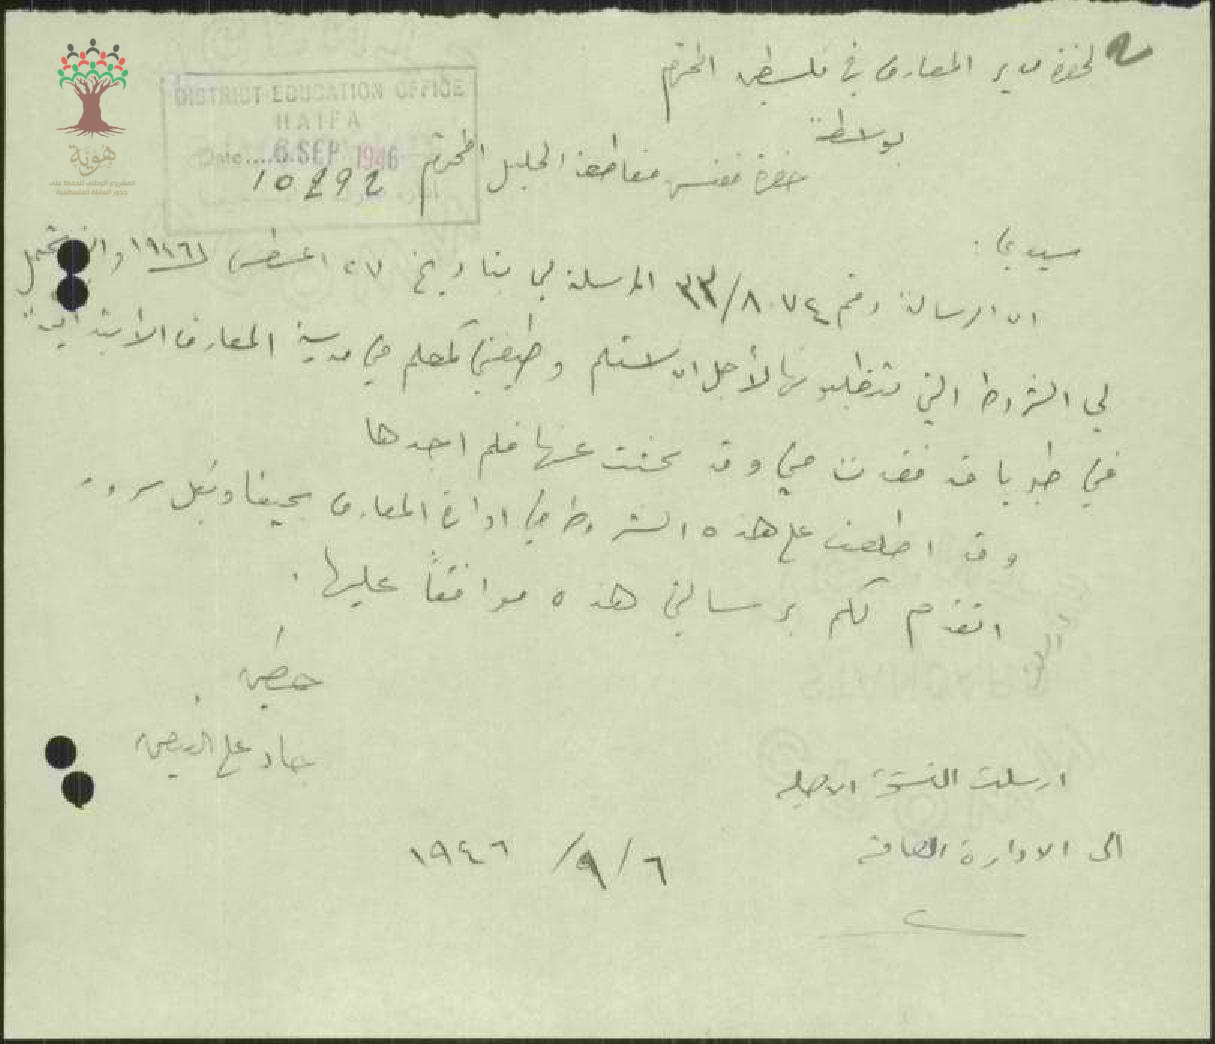 لحضرة مدير المعارف في فلسطين المحترم
بواسطة
حضرة مفتش مقاطعة الجليل المحترم
DISTRICT EDUCATION OFFICE
HAIFA
Date....6 SEP 1946
10292
هوية
المشروع الوطني للحفاظ على
جذور العائلة الفلسطينية
سيدي:
ان الرسالة رقم ٣٣/٨٠٧٤ المرسلة لي بتاريخ ٢٧ اغسطس ١٩٤٦
لي الشروط التي تتطلبونها لأجل ان استلم وظيفتي كمعلم في مدرسة المعارف الابتدائية
في طبريا قد فقدت مني وقد بحثت عنها فلم اجدها
وقد اطلعت على هذه الشروط في ادارة المعارف بحيفا وبكل سرور
اتقدم لكم برسالتي هذه موافقاً عليها.
علي
ارسلت النسخة الاصلية
الى الادارة العامة
٦/٩/ ١٩٤٦